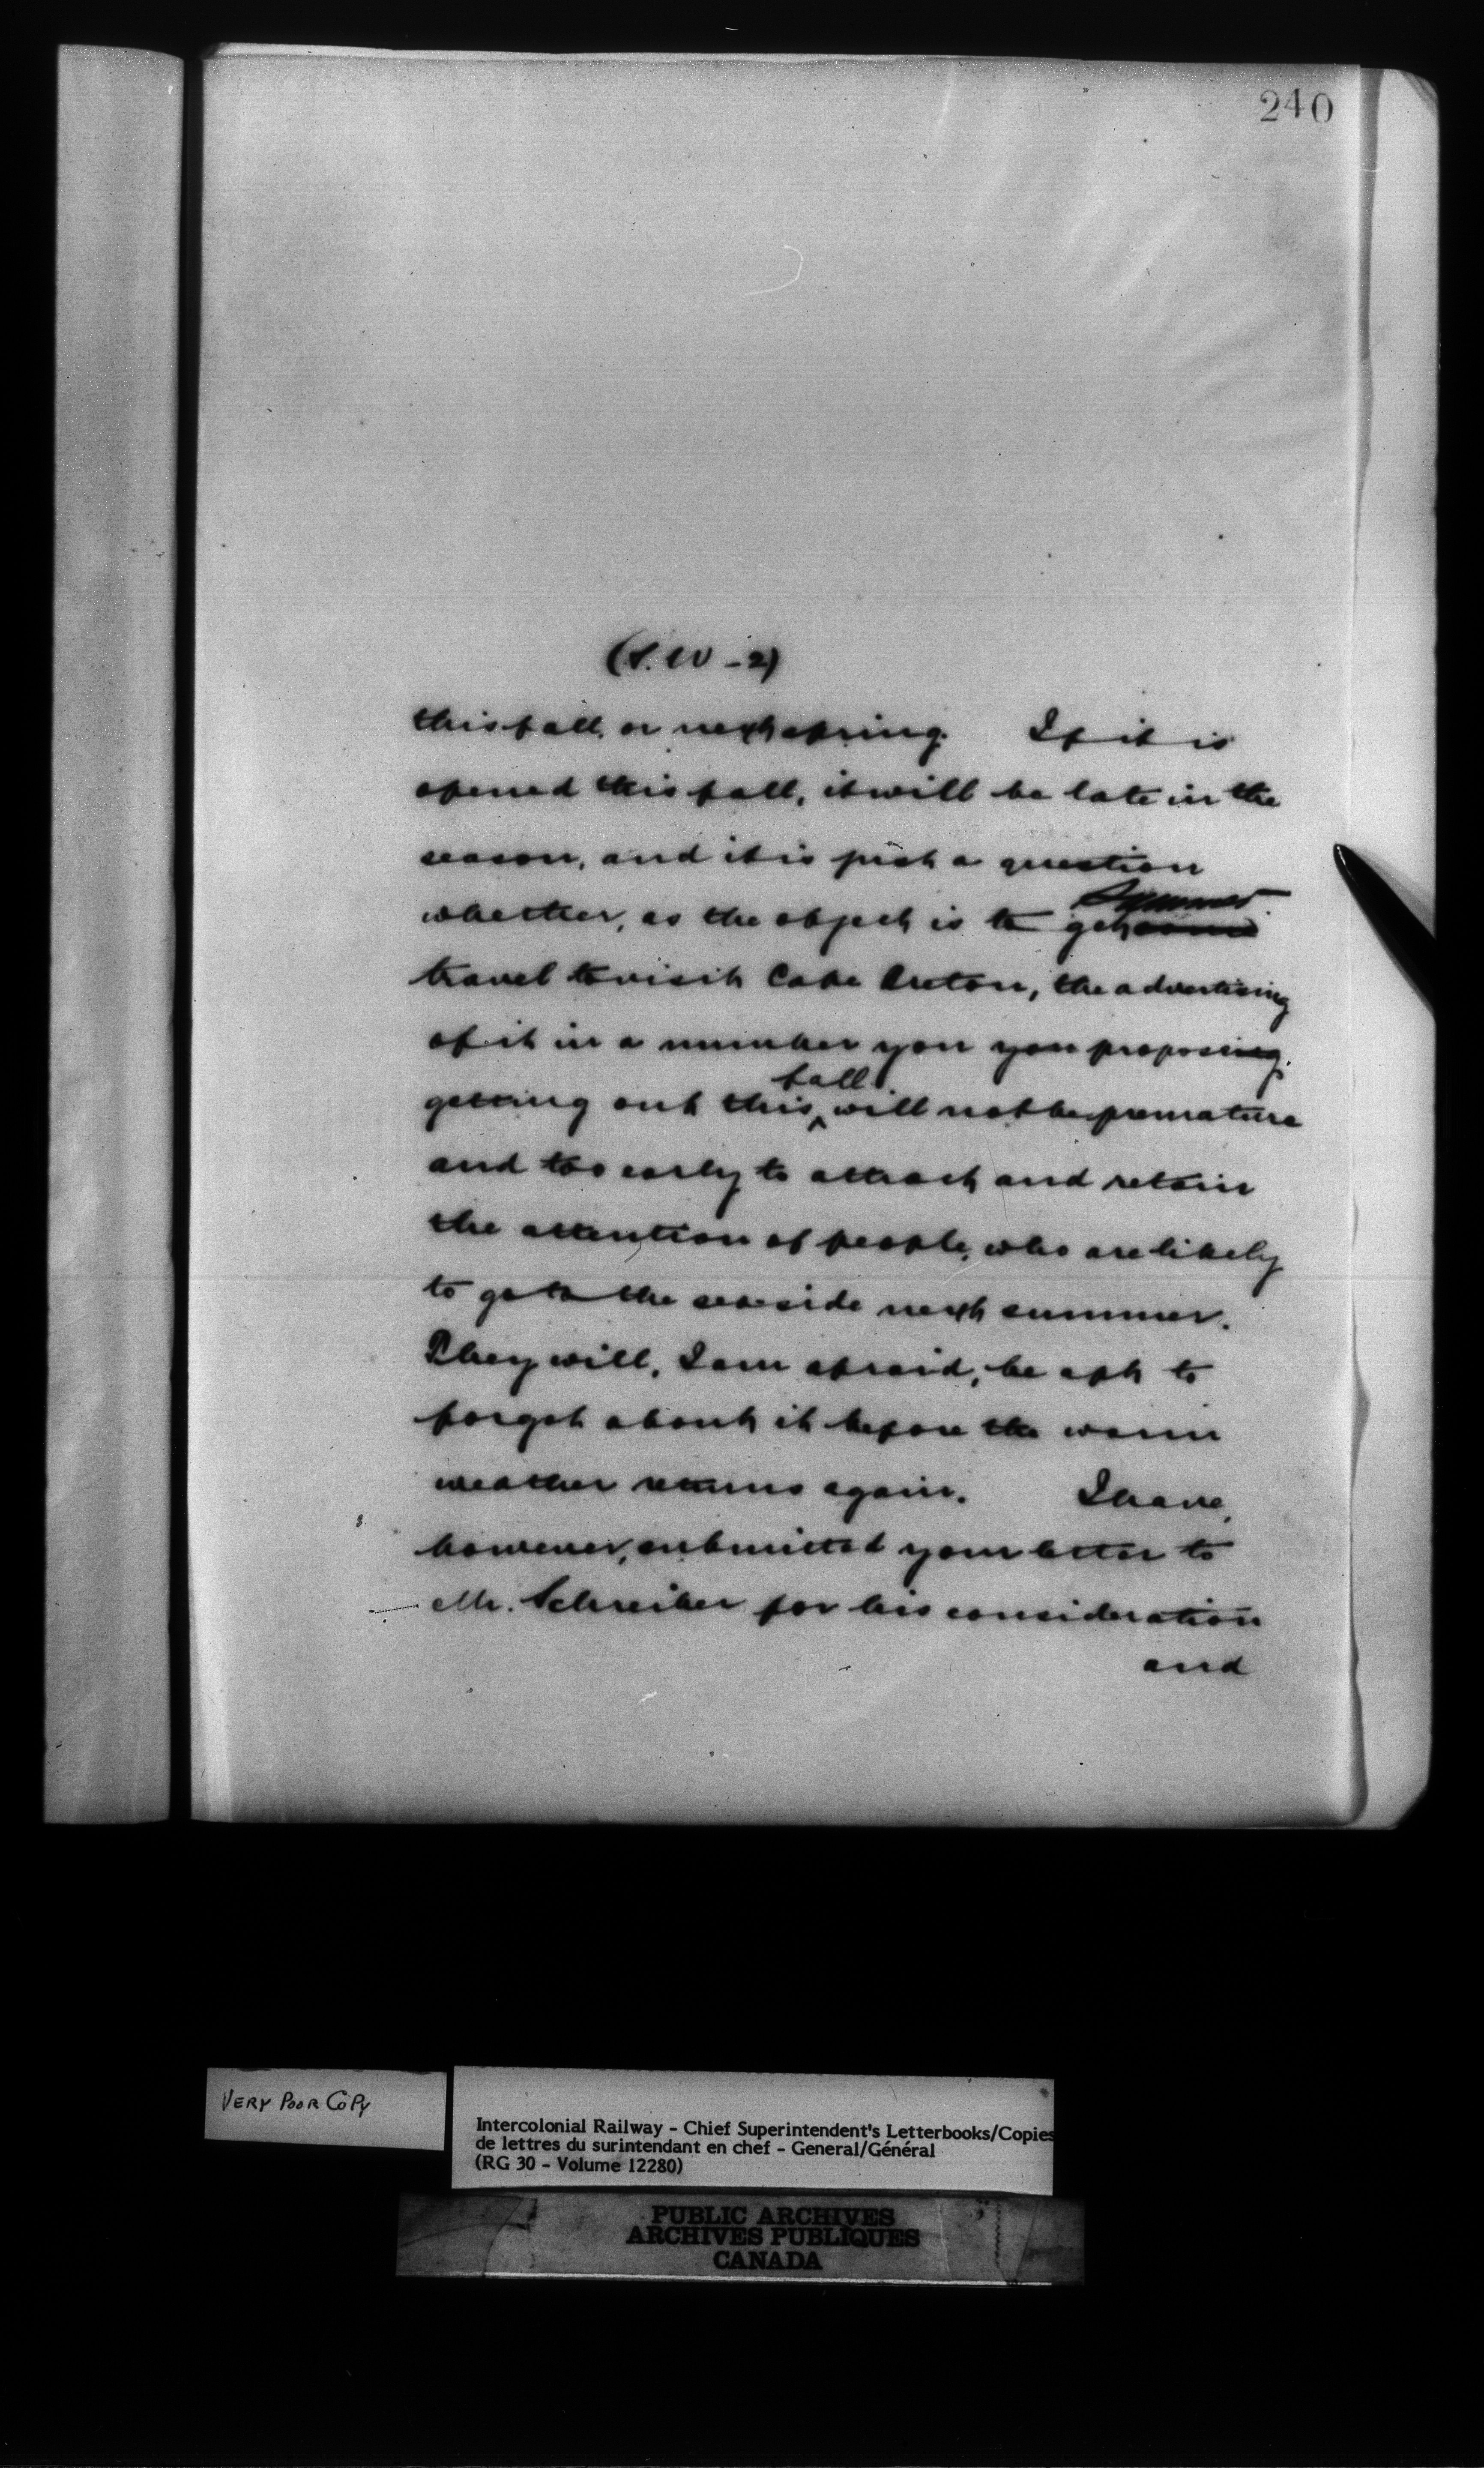 240
(S. W - 2)
this fall, or next spring. If it is
opened this fall, it will be late in the
season, and it is just a question
Summer
whether, as the object is to get
travel to visit Cape Breton, the advertising
of it in a number you you proposing
fall
getting out this ^ will not be premature
and too early to attract and retain
the attention of people, who are likely
to go to the seaside next summer.
They will, I am afraid, be apt to
forget about it before the warm
weather returns again. I have,
however, submitted your letter to
Mr. Schreiber for his consideration
and
VERY POOR COPY
Intercolonial Railway - Chief Superintendent's Letterbooks/Copies
de lettres du surintendant en chef - General/Général
(RG 30 - Volume 12280)
PUBLIC ARCHIVES
ARCHIVES PUBLIQUES
CANADA